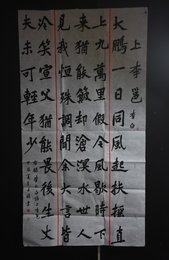 上李邕 李白
大鵬一日同風起扶搖直
上九萬里假令風歇時下
來猶能簸却滄溟水世人
見我恒殊調聞余大言皆
冷笑宣父猶能畏後生丈
夫未可輕年少